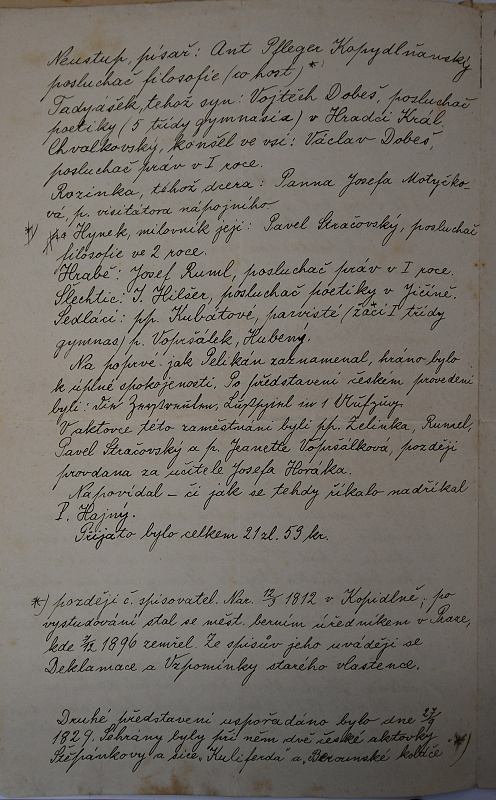 Neustup, písař: Ant Pfleger Kopydlňanský
posluchač filosofie (co host) *)
Tadyášek, téhož syn: Vojtěch Dobeš, posluchač
poetiky (5 třídy gymnasia) v Hradci Král
Chvalkovský, konšel ve vsi: Václav Dobeš,
posluchač práv v I roce.
Rozinka, téhož dcera: Panna Josefa Motyčko-
va, p. visitátora nápojního
*) Hynek, milovník její: Pavel Stračovský, posluchač
filosofie ve 2 roce.
Hrabě: Josef Ruml, posluchač práv v I roce.
Šlechtic: I. Hilšer, posluchač poetiky v Jičíně.
Sedláci: pp. Kubátové, parvisté (žáci I třídy
gymnas) p. Vopršálek, Hubený.
Na poprvé jak Pelikán zaznamenal, hráno bylo
k úplné spokojenosti. Po představení českém provedeni
byli: Die Zerstreuten, Lustspiel in 1 Aufzug.
V aktovce této zaměstnáni byli pp. Zelinka, Rummel,
Pavel Stračovský a p. Jeanette Vopršálková, později
provdana za učitele Josefa Horáka.
Napovídal – či jak se tehdy říkalo nadříkal
P. Hajný.
Přijato bylo celkem 21 zl. 59 kr.
*) později č. spisovatel. Nar. 12/3 1812 v Kopidlně; po
vystudování stal se měst. berním úředníkem v Praze,
kde 1896 zemřel. Ze spisův jeho uvádějí se
Deklamace a Vzpomínky starého vlastence.
Druhé představení uspořádáno bylo dne 27/9
1829. Sehrány byly při něm dvě české aktovky
Štěpánkovy a sice „Kuliferda" a „Berounské koláče" *)